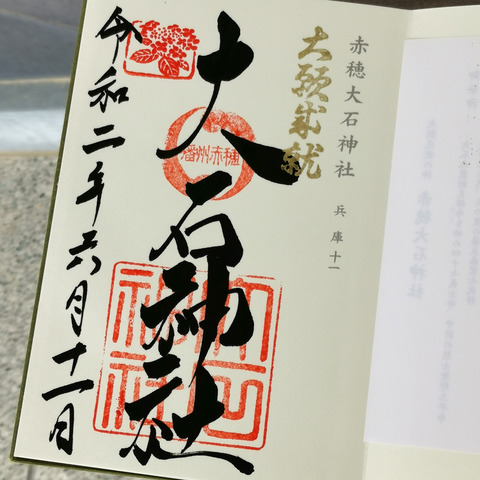 赤穂大石神社 兵庫十一
大願成就
大石神社
播州赤穂
令和二年六月十一日